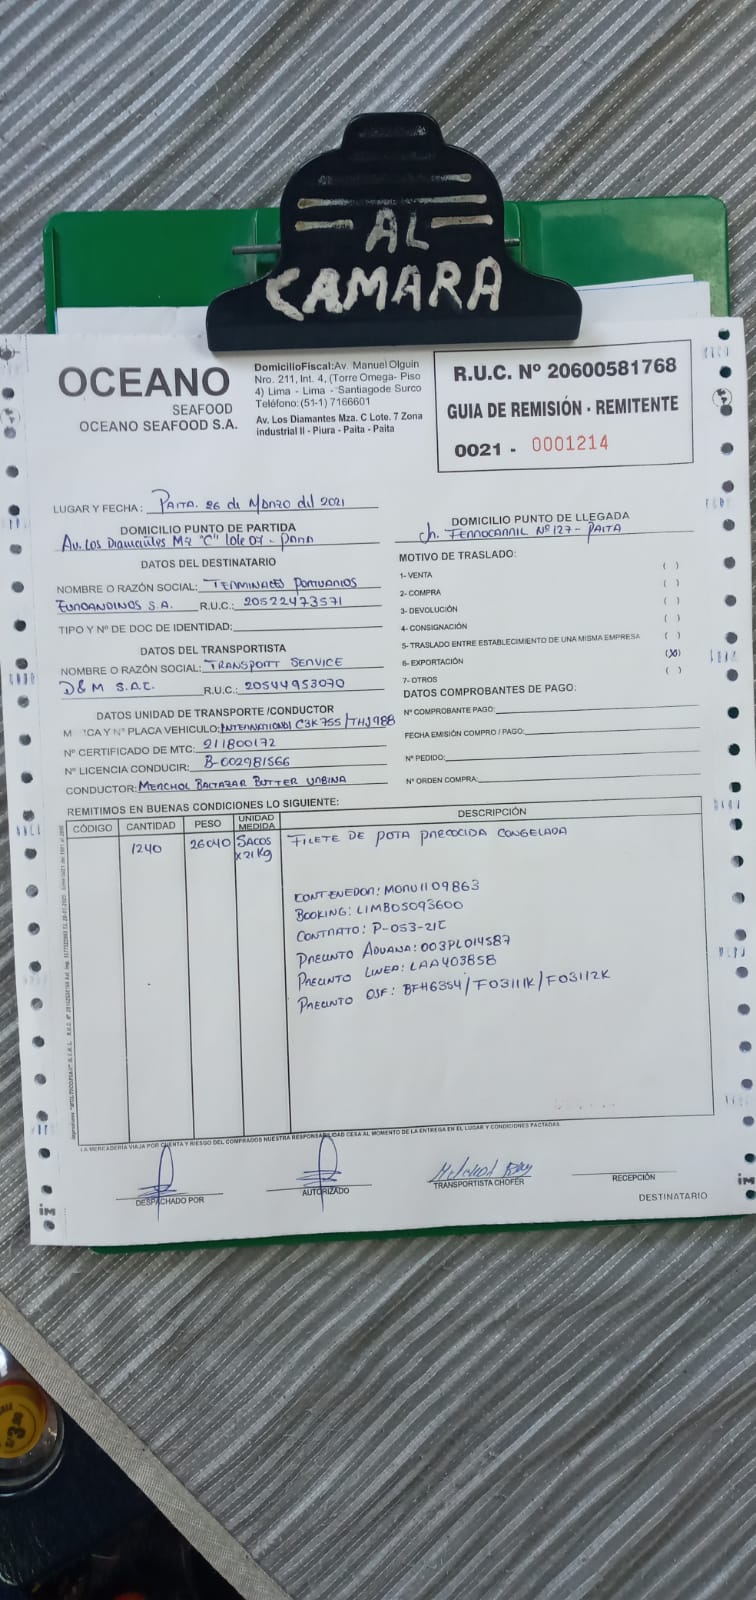 AL
CAMARA
OCEANO
SEAFOOD
OCEANO SEAFOOD S.A.
DomicilioFiscal:Av. Manuel Olguin
Nro. 211, Int. 4, (Torre Omega- Piso
4) Lima - Lima - Santiagode Surco
Teléfono:(51-1) 7166601
Av. Los Diamantes Mza. C Lote. 7 Zona
industrial II - Piura - Paita - Paita
R.U.C. Nº 20600581768
GUIA DE REMISIÓN - REMITENTE
0021 - 0001214
LUGAR Y FECHA: PAITA. 26 de Marzo del 2021
DOMICILIO PUNTO DE PARTIDA
Av. Los Diamantes Mz "C" lote 07 -
DOMICILIO PUNTO DE LLEGADA
ch. FERROCARRIL Nº 127 - PAITA
DATOS DEL DESTINATARIO
NOMBRE O RAZÓN SOCIAL: TERMINALES PORTUARIOS
EUROANDINOS S.A. R.U.C.: 20522473571
TIPO Y Nº DE DOC DE IDENTIDAD:
MOTIVO DE TRASLADO:
1- VENTA ( )
2- COMPRA ( )
3- DEVOLUCIÓN ( )
4- CONSIGNACIÓN ( )
5- TRASLADO ENTRE ESTABLECIMIENTO DE UNA MISMA EMPRESA ( )
6- EXPORTACIÓN (XX)
7- OTROS ( )
DATOS DEL TRANSPORTISTA
NOMBRE O RAZÓN SOCIAL: TRANSPORTT SERVICE
D&M S.A.C. R.U.C.: 20544953070
DATOS COMPROBANTES DE PAGO:
Nº COMPROBANTE PAGO:
FECHA EMISIÓN COMPRO / PAGO:
Nº PEDIDO:
Nº ORDEN COMPRA:
DATOS UNIDAD DE TRANSPORTE /CONDUCTOR
M CA Y Nº PLACA VEHICULO: INTERNATIONAL C3K755/THJ988
Nº CERTIFICADO DE MTC: 211800172
Nº LICENCIA CONDUCIR: B-002981566
CONDUCTOR: MERCHOL BALTAZAR BUTTER URBINA
REMITIMOS EN BUENAS CONDICIONES LO SIGUIENTE:
CÓDIGO CANTIDAD PESO UNIDAD MEDIDA DESCRIPCIÓN
1240 26040 SACOS x 21 Kg FILETE DE POTA PRECOCIDA CONGELADA
CONTENEDOR: MORU1109863
BOOKING: LIMB05093600
CONTRATO: P-053-21C
PRECINTO ADUANA: 003PL014587
PRECINTO LINEA: LAA403858
PRECINTO OSF: BFH6354/F03111K/F03112K
LA MERCADERÍA VIAJA POR CUENTA Y RIESGO DEL COMPRADOS NUESTRA RESPONSABILIDAD CESA AL MOMENTO DE LA ENTREGA EN EL LUGAR Y CONDICIONES PACTADAS
DESPACHADO POR
AUTORIZADO
TRANSPORTISTA CHOFER
RECEPCIÓN
DESTINATARIO
im
im